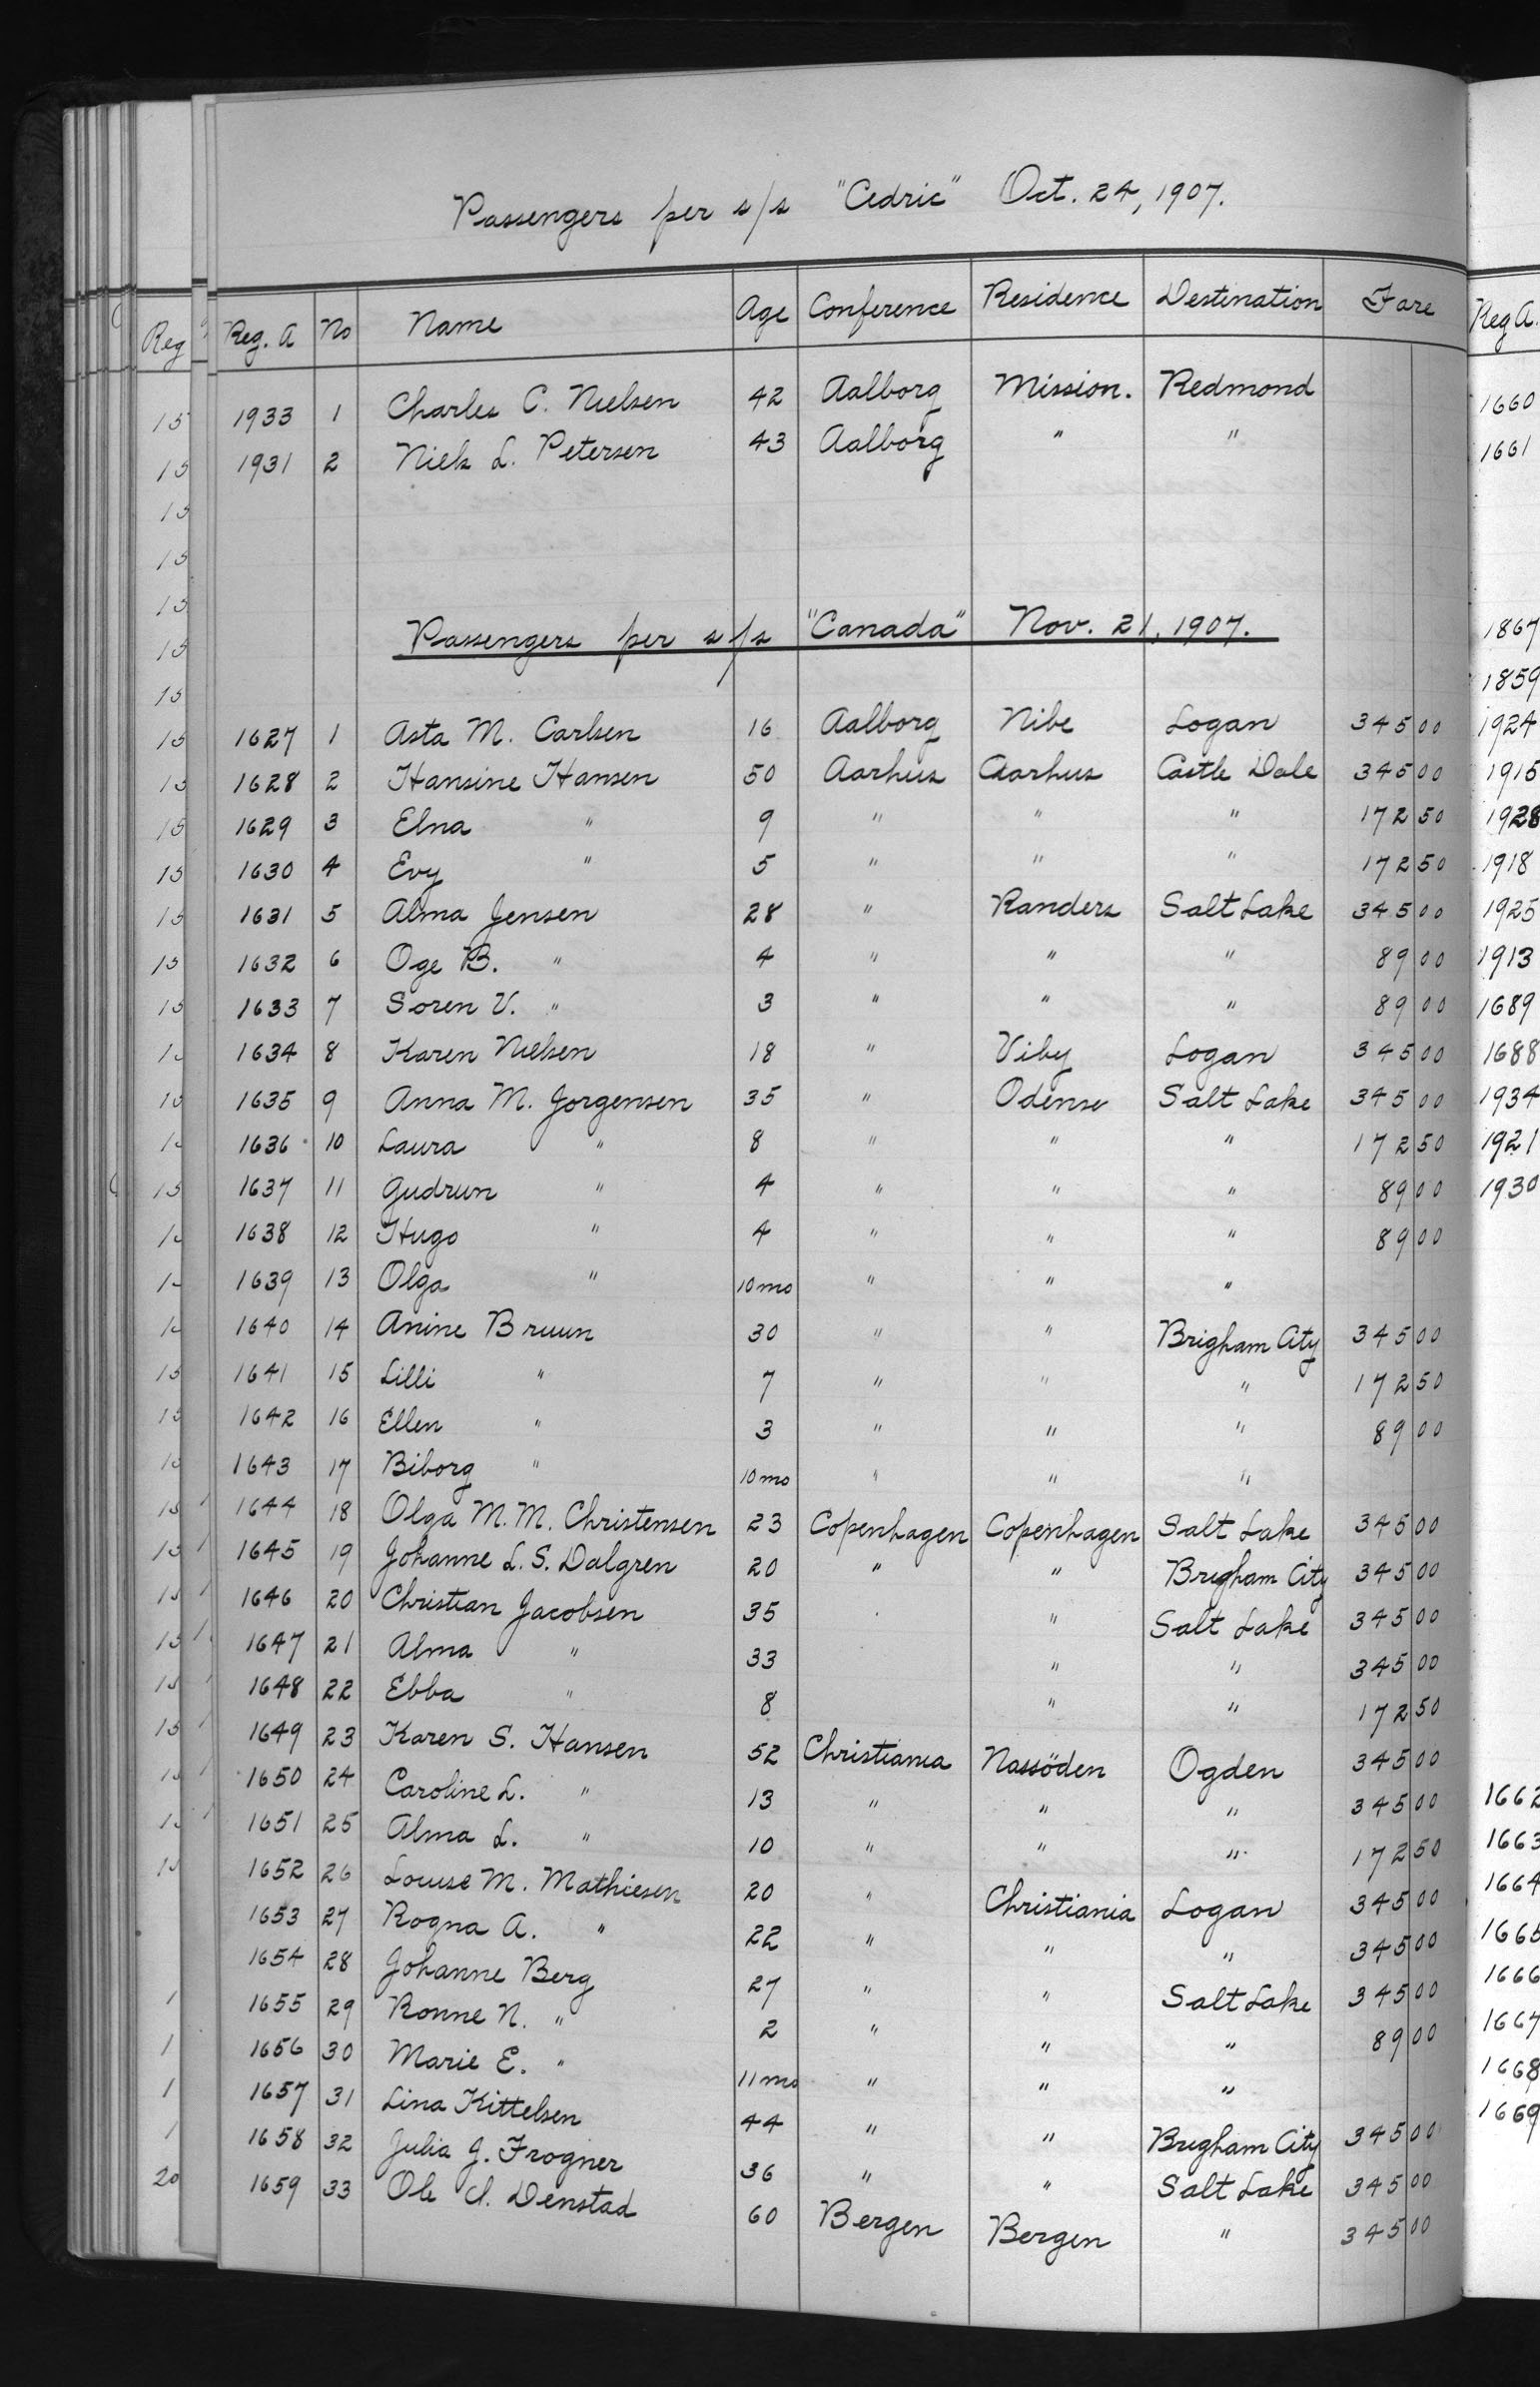 Passengers per s/s "Cedric" Oct. 24, 1907.
Reg. A No Name Age Conference Residence Destination Fare
1933 1 Charles C. Nielsen 42 Aalborg Mission. Redmond
1931 2 Niels L. Petersen 43 Aalborg " "
Passengers per s/s "Canada" Nov. 21, 1907.
1627 1 Asta M. Carlsen 16 Aalborg Nibe Logan 345 00
1628 2 Hansine Hansen 50 Aarhus Aarhus Castle Dale 345 00
1629 3 Elna " 9 " " " 172 50
1630 4 Evy " 5 " " " 172 50
1631 5 Alma Jensen 28 " Randers Salt Lake 345 00
1632 6 Oge B. " 4 " " " 89 00
1633 7 Soren V. " 3 " " " 89 00
1634 8 Karen Nielsen 18 " Viby Logan 345 00
1635 9 Anna M. Jorgensen 35 " Odense Salt Lake 345 00
1636 10 Laura " 8 " " " 172 50
1637 11 Gudrun " 4 " " " 89 00
1638 12 Hugo " 4 " " " 89 00
1639 13 Olga " 10 mo " " "
1640 14 Anine Bruun 30 " " Brigham City 345 00
1641 15 Lilli " 7 " " " 172 50
1642 16 Ellen " 3 " " " 89 00
1643 17 Biborg " 10 mo " " "
1644 18 Olga M. M. Christensen 23 Copenhagen Copenhagen Salt Lake 345 00
1645 19 Johanne L. S. Dalgren 20 " " Brigham City 345 00
1646 20 Christian Jacobsen 35 " Salt Lake 345 00
1647 21 Alma " 33 " " 345 00
1648 22 Ebba " 8 " " 172 50
1649 23 Karen S. Hansen 52 Christiania Nassöden Ogden 345 00
1650 24 Caroline L. " 13 " " " 345 00
1651 25 Alma L. " 10 " " " 172 50
1652 26 Louise M. Mathiesen 20 " Christiania Logan 345 00
1653 27 Rogna A. " 22 " " " 345 00
1654 28 Johanne Berg 27 " " Salt Lake 345 00
1655 29 Ronne N. " 2 " " " 89 00
1656 30 Marie E. " 11 mo " " "
1657 31 Lina Kittelsen 44 " " Brigham City 345 00
1658 32 Julia J. Frogner 36 " " Salt Lake 345 00
1659 33 Ole Denstad 60 Bergen Bergen " 345 00
Reg A.
1660
1661
1867
1859
1924
1915
1928
1918
1925
1913
1689
1688
1934
1921
1930
1662
1663
1664
1665
1666
1667
1668
1669